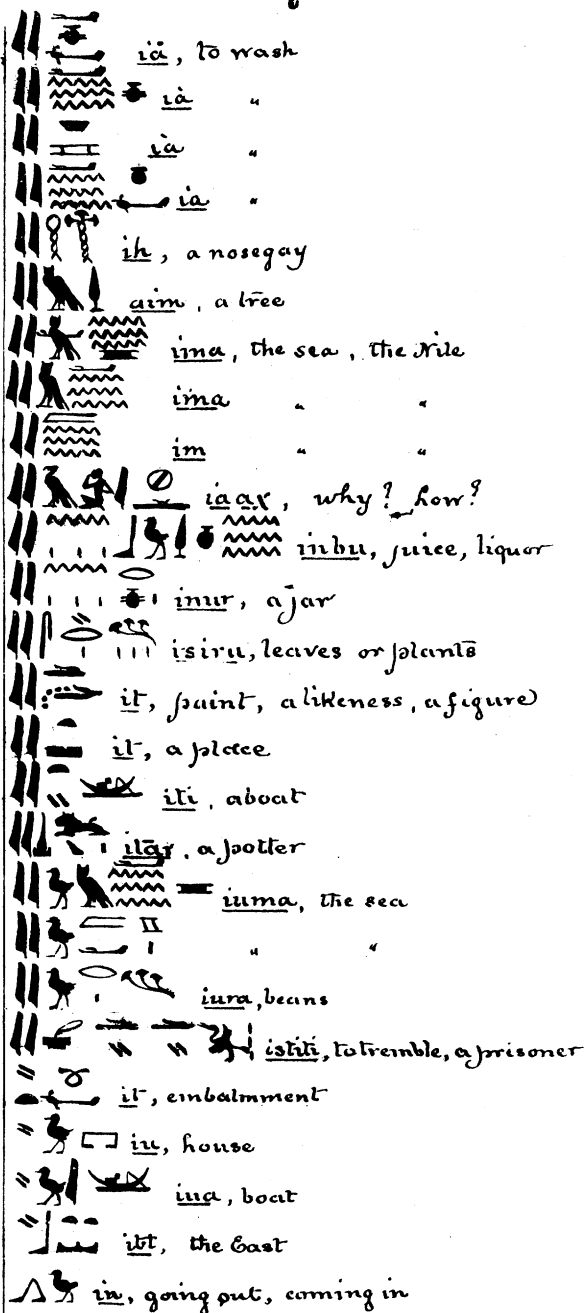 iä, to wash
iȧ "
iȧ "
ia "
ih, a nosegay
aim, a tree
ima, the sea, the Nile
ima " "
im " "
iaaχ, why? how?
inbu, juice, liquor
inur, a jar
isiru, leaves or plants
it, paint, a likeness, a figure
it, a place
iti, a boat
a potter
iuma, the sea
" "
iura, beans
istiti, to tremble, a prisoner
it, embalmment
iu, house
iua, boat
ibt, the East
in, going out, coming in